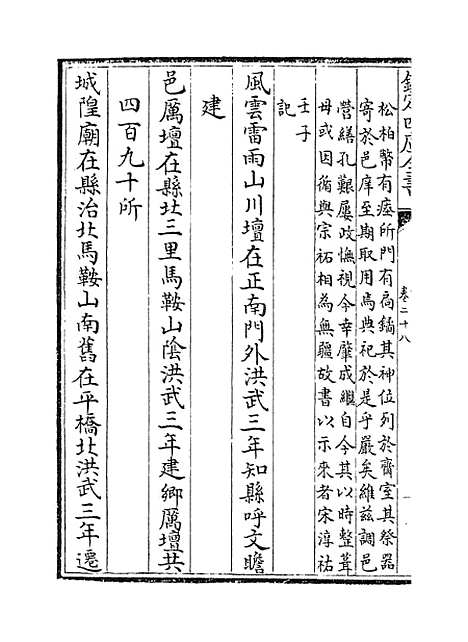 欽定四庫全書
卷二十八
松柏幣有瘞所門有扃鐍其神位列於齋室其祭器
寄於邑庠至期取用焉典祀於是乎嚴矣維兹調邑
營繕孔艱屢政憮視今幸肇成繼自今其以時整葺
毋或因循與宗祏相為無疆故書以示來者宋淳祐
壬子
記
風雲雷雨山川壇在正南門外洪武三年知縣呼文瞻
建
邑厲壇在縣北三里馬鞍山陰洪武三年建鄉厲壇共
四百九十所
城隍廟在縣治北馬鞍山南舊在平橋北洪武三年遷